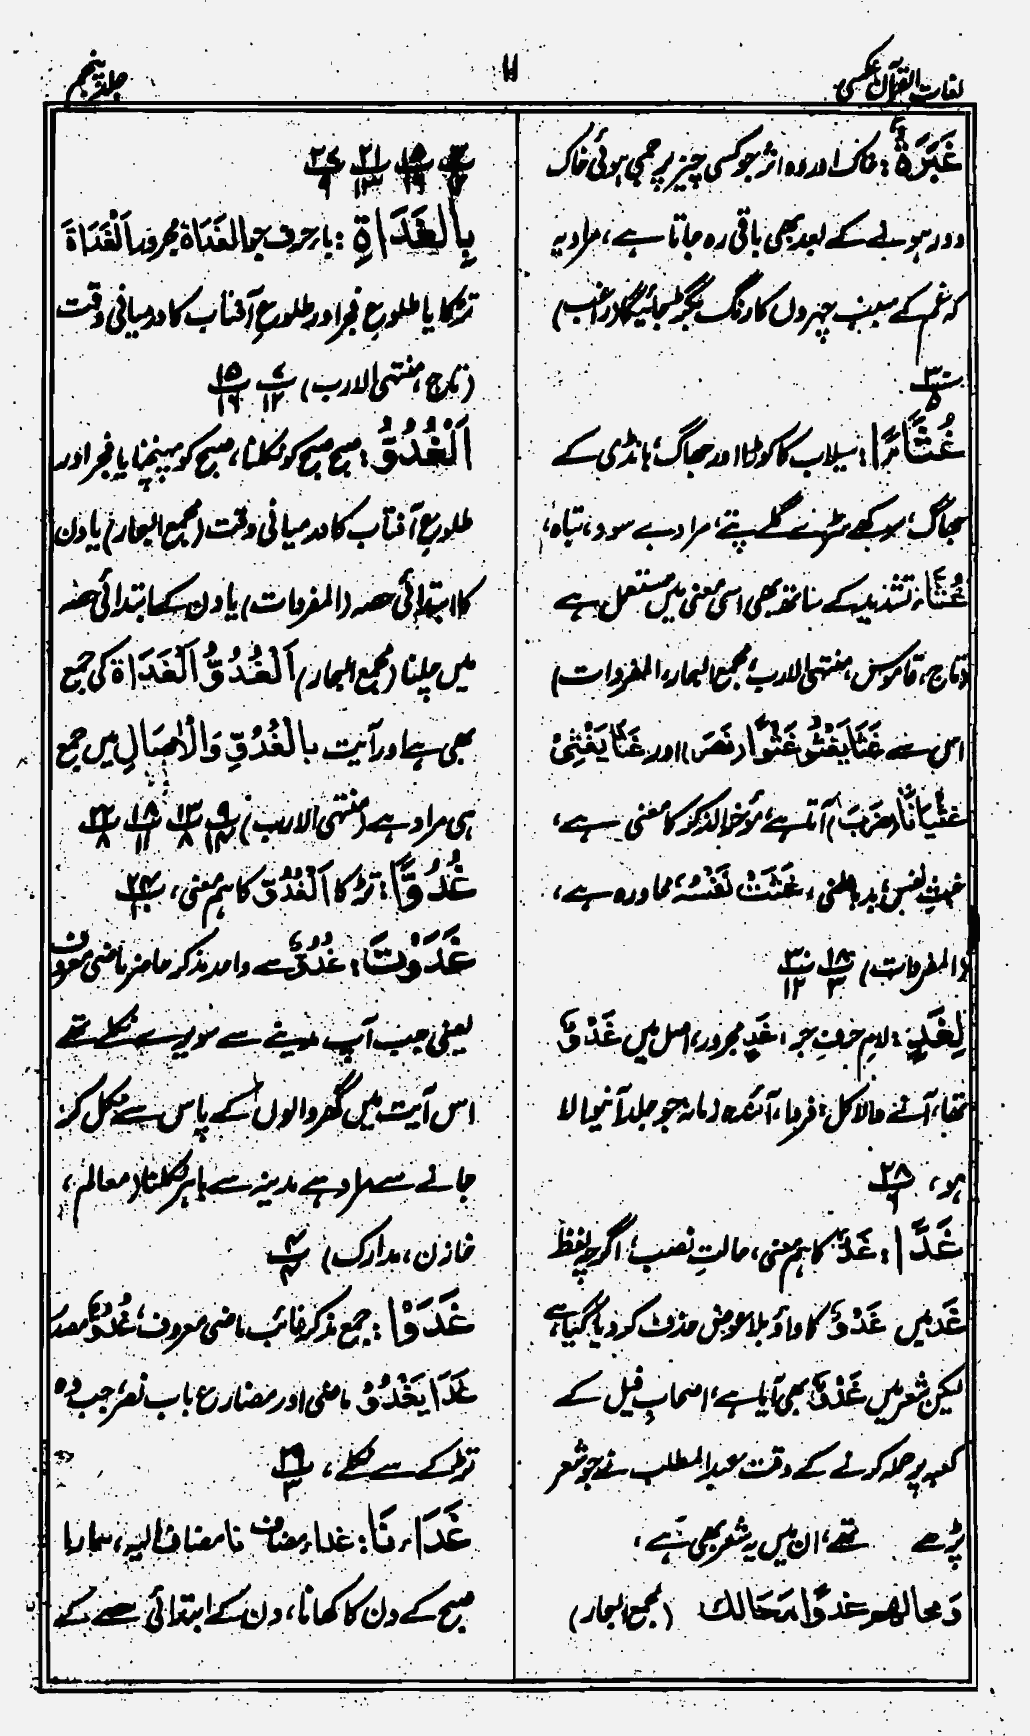 لغات القرآن عکسی
۱۱
جلد پنجم
غَبَرَةٌ: خاک اور وہ اثر جو کسی چیز پر جمی ہوئی خاک
دور ہونے کے بعد بھی باقی رہ جاتا ہے، مراد یہ
کہ غم کے سبب چہروں کا رنگ بگڑ جائیگا (راغب)
۳۰/۵
غُثَاءً: سیلاب کا کوڑا اور جھاگ، ہانڈی کے
جھاگ، سوکھے سڑے گلے پتے، مراد بے سود، تباہ،
غُثَاء تشدید کے ساتھ بھی اسی معنی میں مستعمل ہے
(تاج، قاموس، منتہی الارب، مجمع البحار، المفردات)
اس سے غَثَا يَغْثُوْ غَثْوًا (نَصَرَ) اور غَثَا يَغْثِيْ
غَثَيَانًا (ضَرَبَ) آتا ہے، مؤخر الذکر کا معنی ہے،
خبثِ نفس، بد باطنی، غَثَتْ نَفْسُهٗ محاورہ ہے،
(المفردات) ۱۸/۳ ۳۰/۱۲
لِغَدٍ: لامِ حرفِ جر، غَدٍ مجرور، اصل میں غَدْوٌ
تھا، آنے والا کل، فردا، آئندہ زمانہ جو جلد آنیوالا
ہو، ۲۸/۶
غَدًا: غَدٌ کا ہم معنی، حالتِ نصب، اگرچہ لفظ
غَد میں غَدْوٌ کا واؤ بلا عوض حذف کر دیا گیا ہے،
لیکن شعر میں غَدْوٌ بھی آیا ہے، اصحابِ فیل کے
کعبہ پر حملہ کرنے کے وقت عبد المطلب نے جو شعر
پڑھے تھے، ان میں یہ شعر بھی ہے،
وَمحالهم غدوًا مَحَالك (مجمع البحار)
۳/۱۲ ۱۵/۱۹ ۲۱/۱۳ ۲۷/۹
بِالْغَدَاةِ: باء حرف جر الغَدَاة مجرور اَلْغَدَاةَ
تڑکا یا طلوعِ فجر اور طلوعِ آفتاب کا درمیانی وقت
(تاج، منتہی الارب) ۷/۱۲ ۱۵/۱۶
اَلْغُدُوُّ: صبح صبح کو نکلنا، صبح کو پہنچنا یا فجر اور
طلوعِ آفتاب کا درمیانی وقت (مجمع البحار) یا دن
کا ابتدائی حصہ (المفردات) یا دن کے ابتدائی حصہ
میں چلنا (مجمع البحار) اَلْغُدُوُّ اَلْغَدَاة کی جمع
بھی ہے اور آیت بِالْغُدُوِّ وَالْاٰصَالِ میں جمع
ہی مراد ہے (منتہی الارب) ۹/۱۴ ۱۳/۸ ۱۸/۱۱ ۲۲/۸
غُدُوًّا: تڑکا اَلْغُدُوّ کا ہم معنی، ۲۴/۱۰
غَدَوْتَ: غُدُوٌّ سے واحد مذکر حاضر ماضی معروف
یعنی جب آپ مدینے سے سویرے نکلے تھے
اس آیت میں گھر والوں کے پاس سے نکل کر
جانے سے مراد ہے مدینہ سے باہر نکلنا (معالم،
خازن، مدارک) ۴/۴
غَدَوْا: جمع مذکر غائب ماضی معروف، غُدُوٌّ مصدر
غَدَا يَغْدُوْ ماضی اور مضارع باب نصر، جب وہ
تڑکے سے نکلے، ۲۹/۳
غَدَاءَنَا: غداء مضاف نا مضاف الیہ، ہمارا
صبح کے دن کا کھانا، دن کے ابتدائی حصے کے